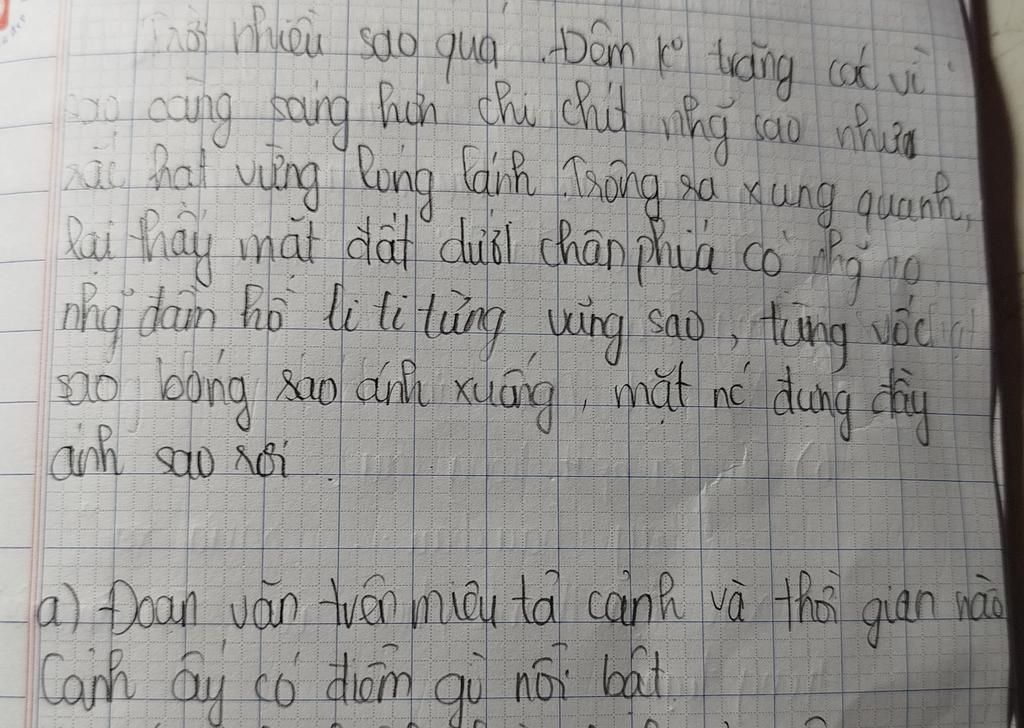 Trời nhiều sao quá. Đêm k° trăng các vì
sao càng sáng hơn chi chít nhg~ sao như
rắc hạt vừng long lánh. Trông ra xung quanh,
lại thấy mặt đất dưới chân phía có nhg~
nhg~ đầm hồ li ti từng vũng sao, từng vốc
sao bóng sao ánh xuống, mặt nc' đựng đầy
ánh sao rơi.
a) Đoạn văn trên miêu tả cảnh và thời gian nào
Cảnh ấy có điểm gì nổi bật